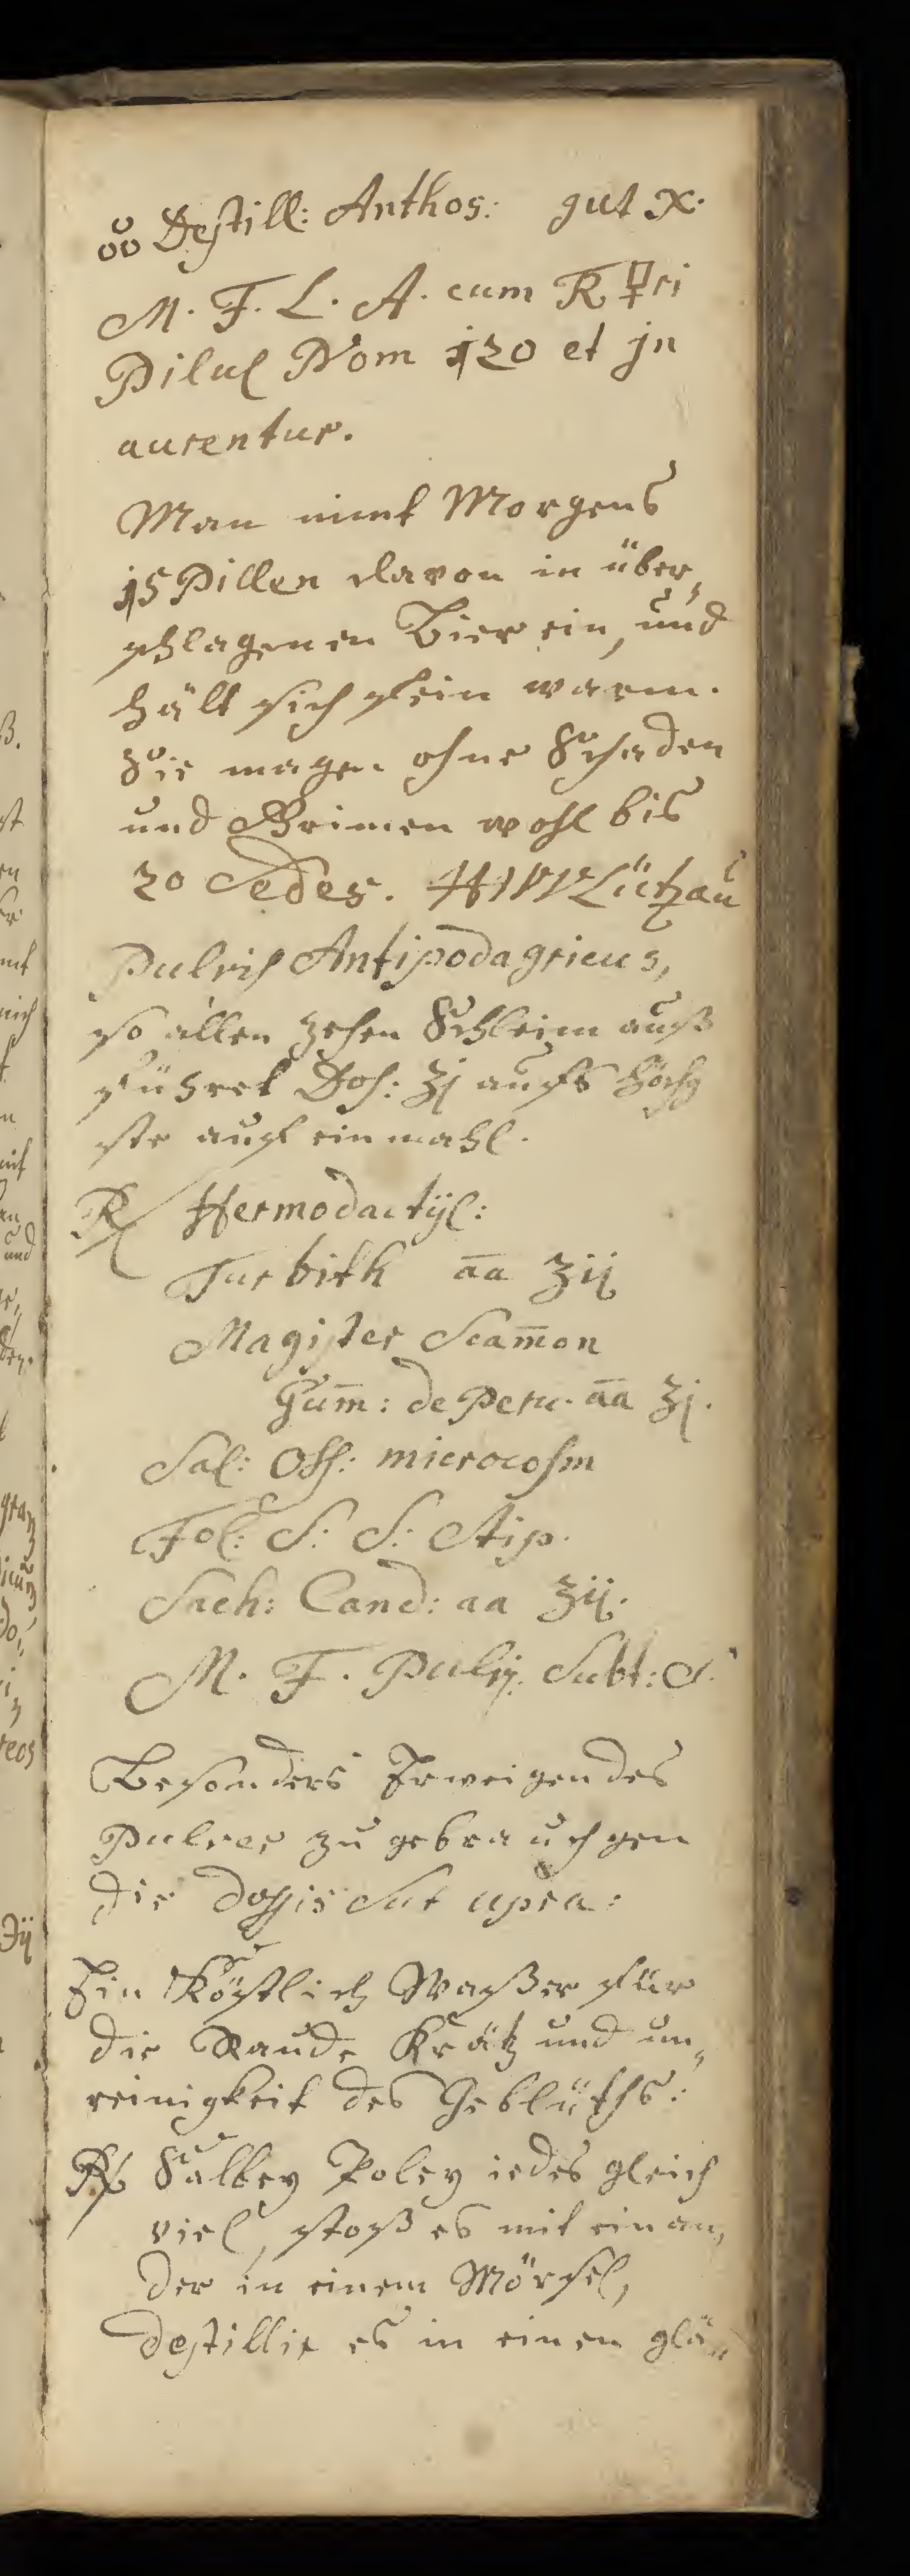 Destill: Anthos: gut x.
M. F. L. A. cum R ☿ri
Pilul Nom 120 et jn
aurentur.
Man nimt Morgens
15 Pillen davon in über„
schlagenen Bier ein, und
hält sich fein warm.
Sie magen ohne Schaden
und Grimen wohl bis
20 Sedes. Lützau
Pulvis Antipodagricus,
so allen zehen Schleim auß
führet Dos: ʒj aufs höch
ste auf einmahl.
R Hermodactÿl:
Turbith āā ʒij
Magister Scam̄on
Gum̄: de Peru. āā ʒj.
Sal: Oss: microcosm
Fol: S: S: Stip.
Sach: Cand: aa ʒij.
M. F. Pulv. Subt: S.
Besonders Erweigendes
Pulver zu gebrauchgen
die Dossis Sut upra:
Ein Köstlich Waßer für
die Raude Krätz und un„
reinigkeit des Geblüths:
R Salbey Poley iedes gleich
viel, stoß es mit einan„
der in einem Mörsel,
destillir es in einen